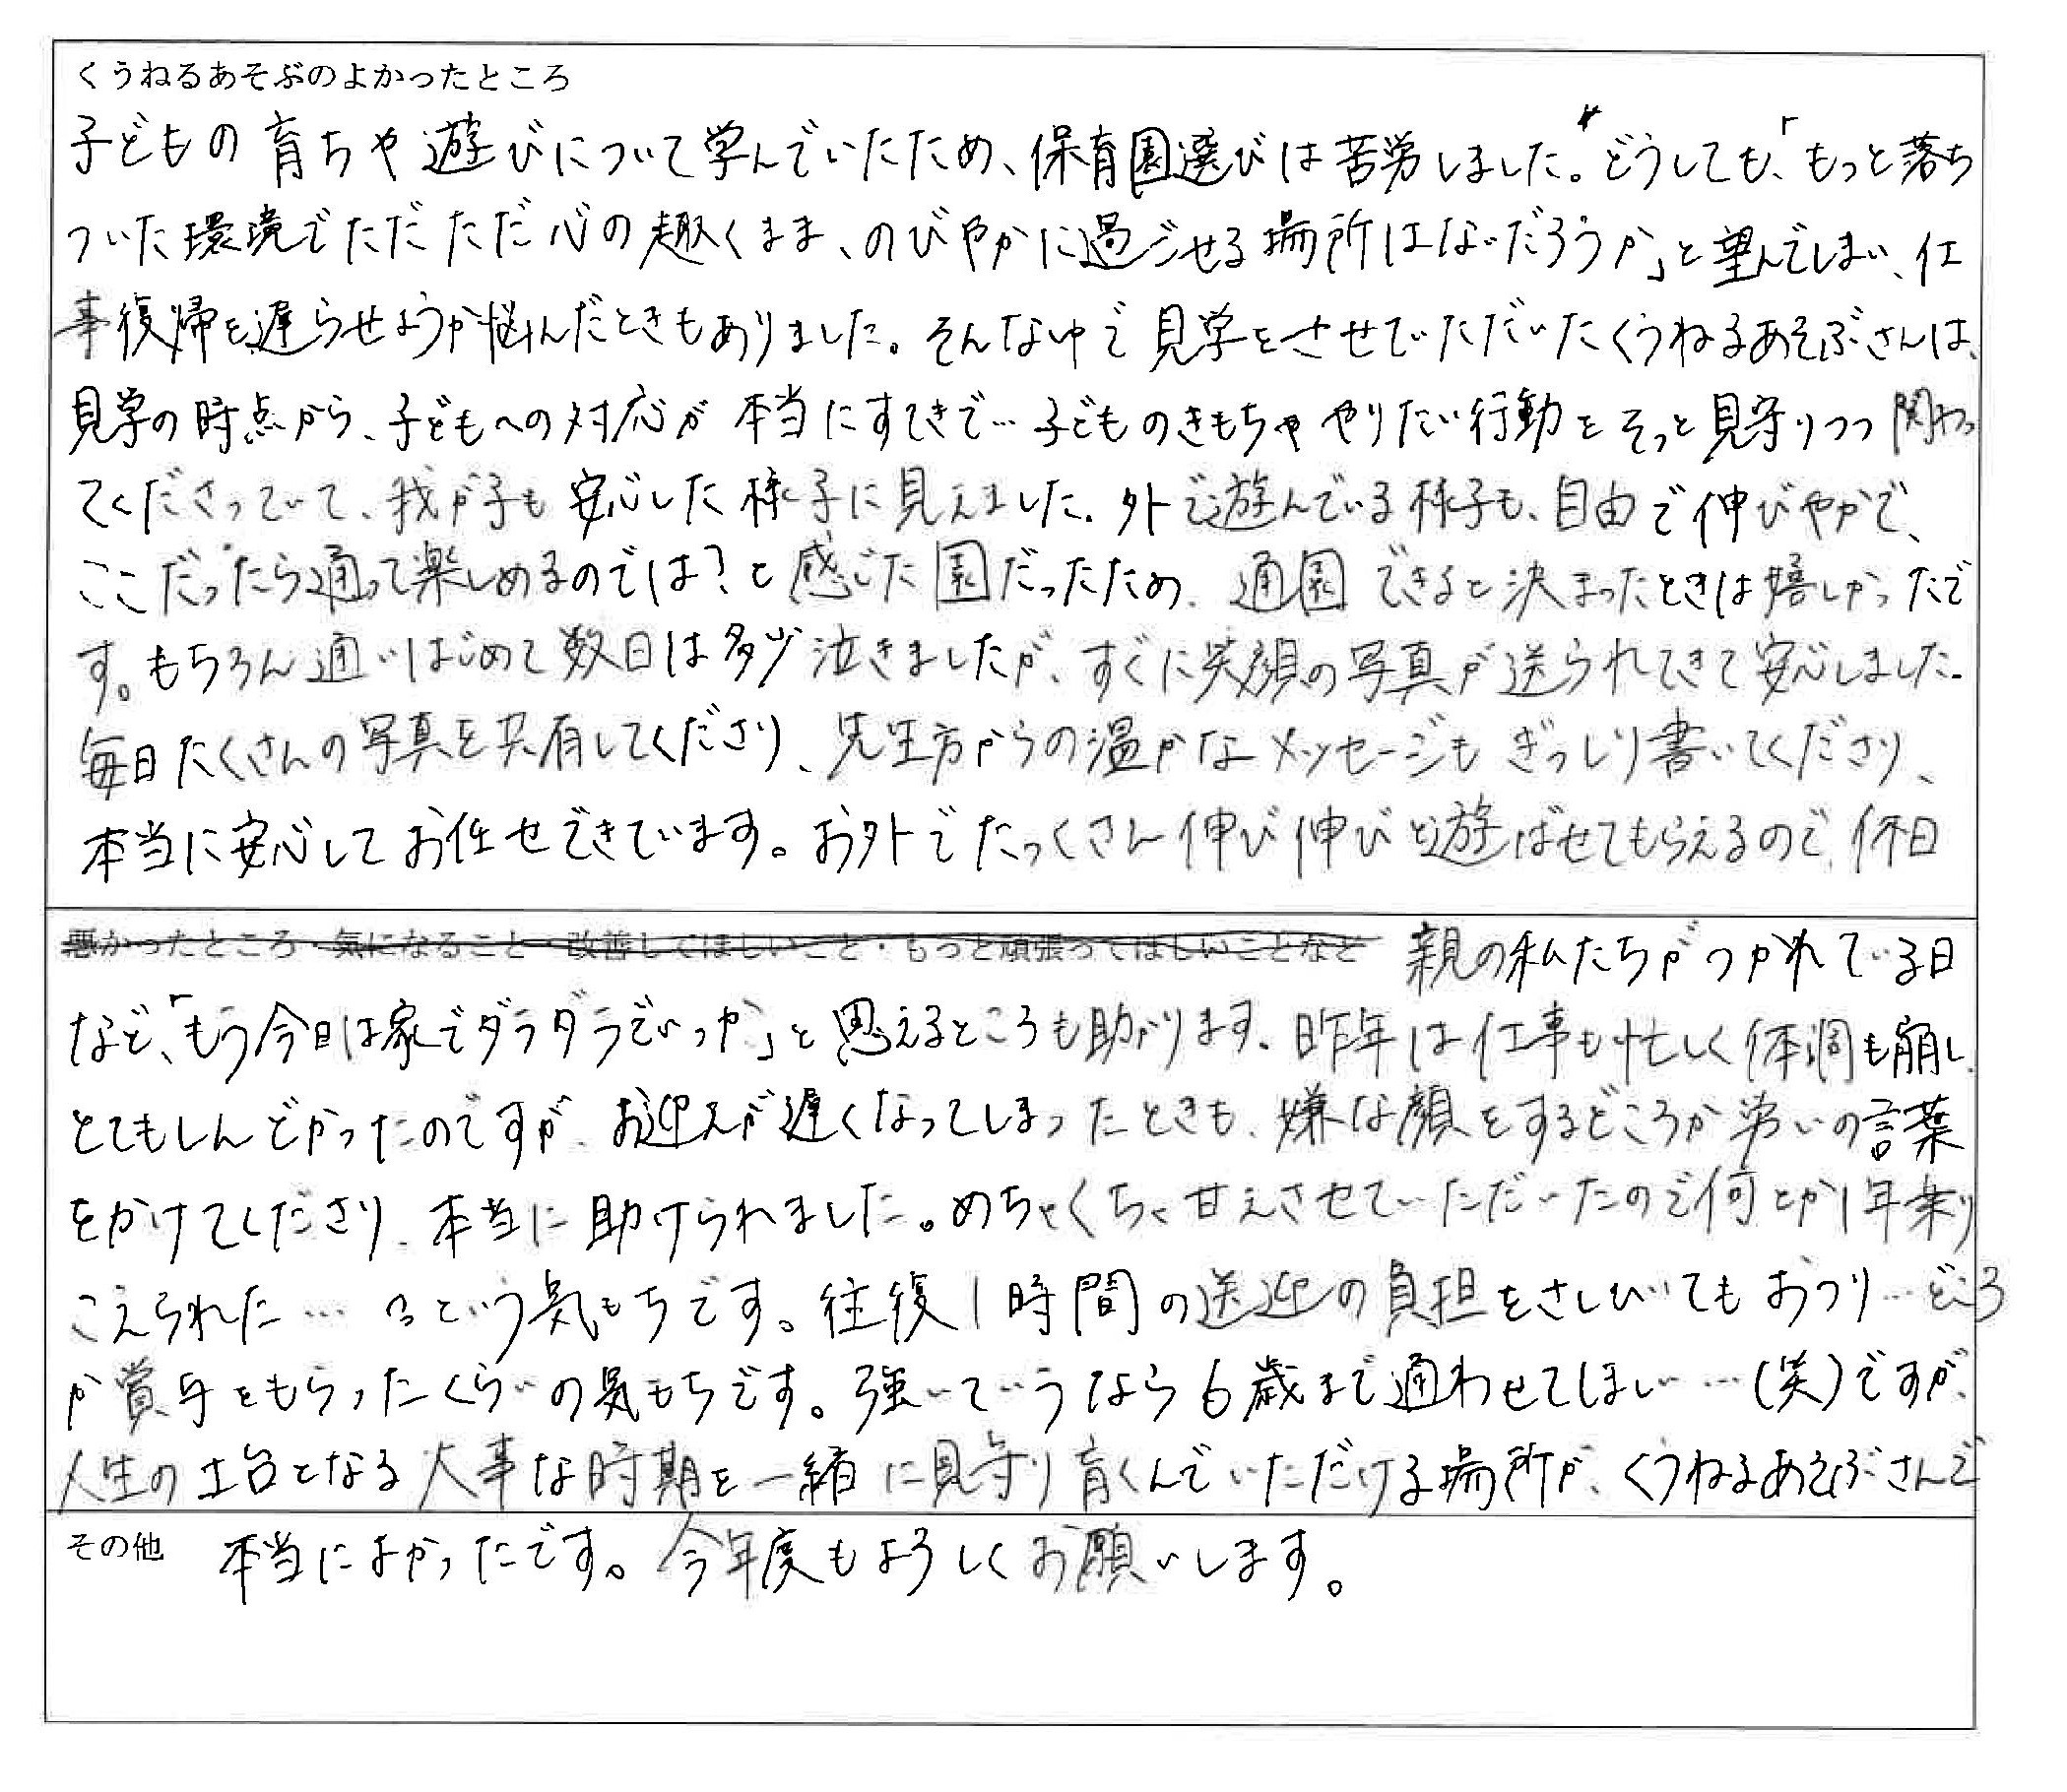 くうねるあそぶのよかったところ
子どもの育ちや遊びについて学んでいたため、保育園選びは苦労しました。どうしても、「もっと落ち
ついた環境でただただ心の趣くまま、のびやかに過ごせる場所はないだろうか」と望んでしまい、仕
事復帰を遅らせようか悩んだときもありました。そんな中で見学をさせていただいたくうねるあそぶさんは、
見学の時点から、子どもへの対応が本当にすてきで…子どものきもちややりたい行動をそっと見守りつつ関わっ
てくださっていて、我が子も安心した様子に見えました。外で遊んでいる様子も、自由で伸びやかで、
ここだったら通って楽しめるのでは？と感じた園だったため、通園できると決まったときは嬉しかったで
す。もちろん通いはじめて数日は多少泣きましたが、すぐに笑顔の写真が送られてきて安心しました。
毎日たくさんの写真を共有してくださり、先生方からの温かなメッセージもぎっしり書いてくださり、
本当に安心してお任せできています。お外でたっくさん伸び伸びと遊ばせてもらえるので、休日
悪かったところ・気になること・改善してほしいこと・もっと頑張ってほしいことなど 親の私たちがつかれている日
など、「もう今日は家でダラダラでいっか」と思えるところも助かります。昨年は仕事も忙しく体調も崩し、
とてもしんどかったのですが、お迎えが遅くなってしまったときも、嫌な顔をするどころか労いの言葉
をかけてくださり、本当に助けられました。めちゃくちゃ甘えさせていただいたので何とか1年乗り
こえられた… という気もちです。往復1時間の送迎の負担をさしひいてもおつり…どころ
か賞与をもらったくらいの気もちです。強いていうなら6歳まで通わせてほしい…(笑)ですが、
人生の土台となる大事な時期を一緒に見守り育くんでいただける場所が、くうねるあそぶさんで
その他 本当によかったです。今年度もよろしくお願いします。